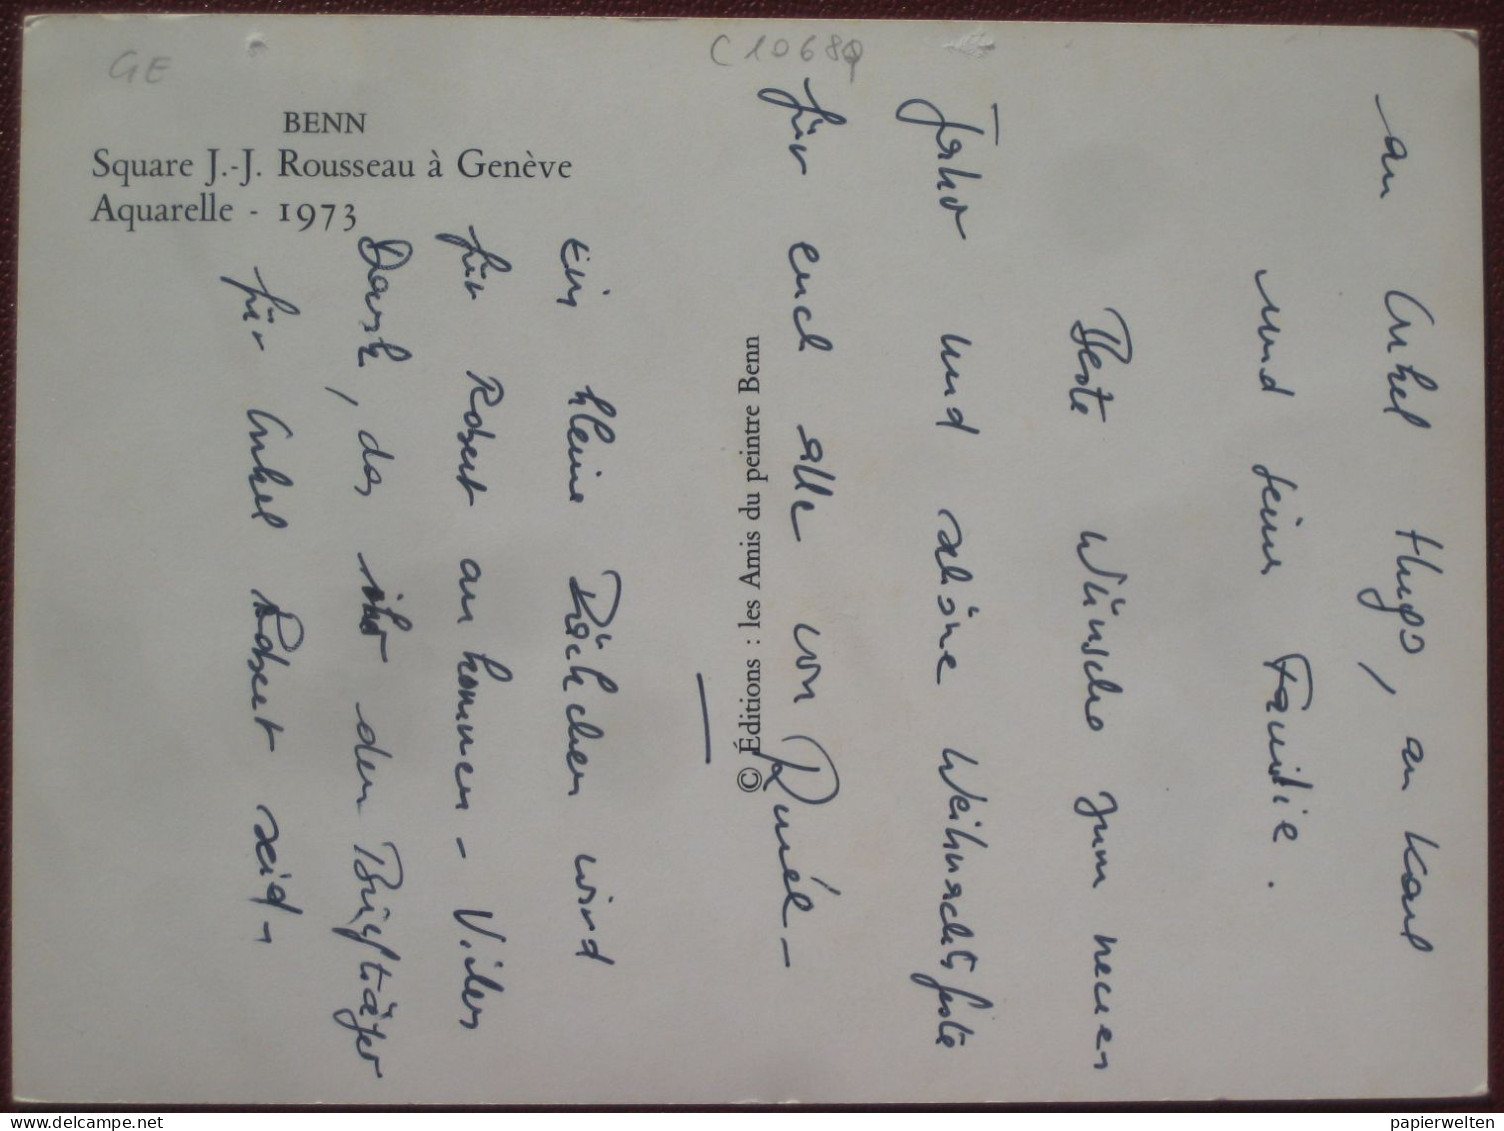 GE
C10689
BENN
Square J.-J. Rousseau à Genève
Aquarelle - 1973
© Éditions : les Amis du peintre Benn
an Onkel Hugo, an Karl
und seine Familie.
Beste Wünsche zum neuen
Jahr und schöne Weihnachtsfeste
für euch alle von
Ein kleine Päckchen wird
für Robert ankommen - Vielen
Dank, das ihr den Briefträger
für Onkel Robert seid -
delcampe.net
papierwelten